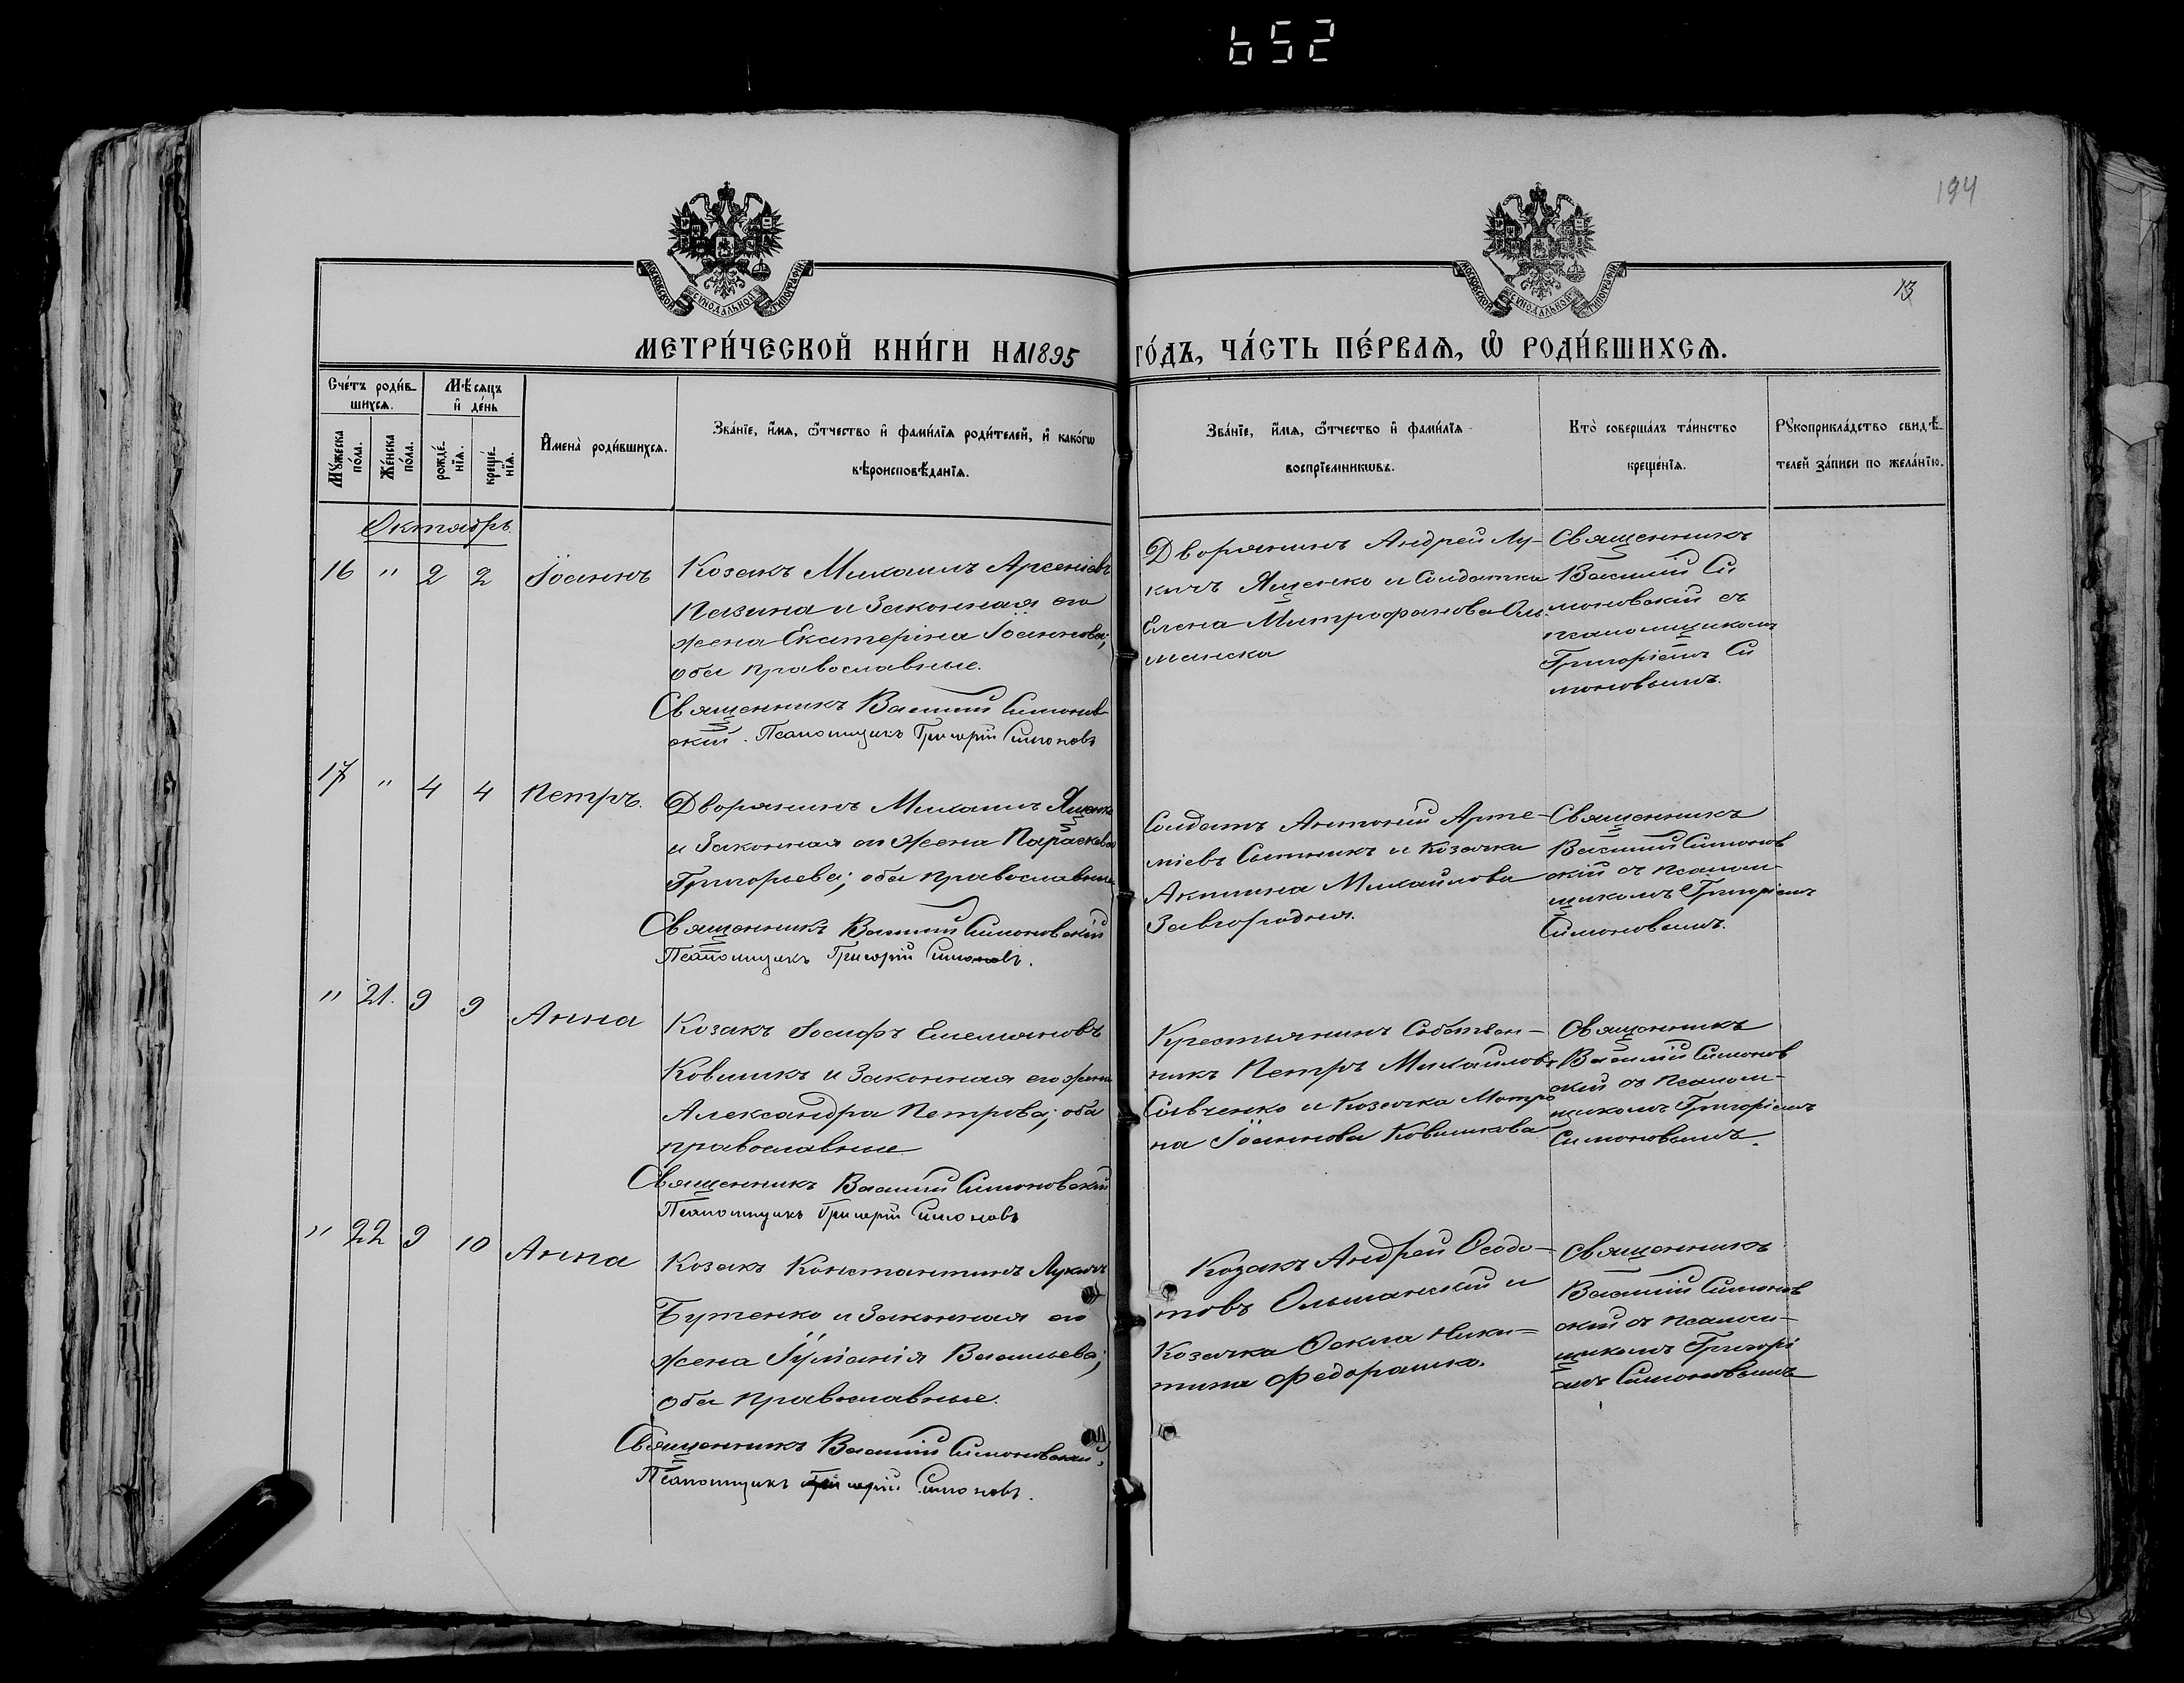 652
194
13
МОСКОВСКОЙ СѴНОДАЛЬНОЙ ТИПОГРАФІИ
МОСКОВСКОЙ СѴНОДАЛЬНОЙ ТИПОГРАФІИ
МЕТРИ́ЧЕСКОЙ КНИ́ГИ НА 1895 ГО́ДЪ, ЧА́СТЬ ПЕ́РВАѦ, Ѽ РОДИ́ВШИХСѦ.
Сче́тъ роди́в-
шихсѧ.
Мѣ́сѧцъ
и҆ де́нь
Мꙋ́жеска
по́ла.
Же́нска
по́ла.
рожде́-
нїѧ.
креще́-
нїѧ.
И҆мена̀ роди́вшихсѧ.
Зва́нїе, и҆́мѧ, ѻ҆́тчество и҆ фами́лїѧ роди́телей, и҆ како́гѡ
вѣроисповѣ́данїѧ.
Зва́нїе, и҆́мѧ, ѻ҆́тчество и҆ фами́лїѧ
воспрїе́мникѡвъ.
Кто̀ соверша́лъ та́инство
креще́нїѧ.
Рꙋкоприкла́дство свидѣ́-
телей за́писи по жела́нїю.
Октябрь
16 " 2 2 Іоаннъ
Козакъ Михаилъ Арсеніевъ
и Законная его
жена Екатеріна Іоаннова;
оба православные.
Священникъ Василій Симонов-
скій. Псаломщикъ Григорій Симоновъ
Дворянинъ Андрей Лу-
кичъ Яценко и Солдатка
Елена Митрофанова Оль-
манска
Священникъ
Василій Си
моновскій съ
псаломщикомъ
Григоріемъ Си
моновымъ.
17 " 4 4 Петръ.
Дворянинъ Михаилъ Яценко
и Законная его жена Параскева
Григорьева; оба православные
Священникъ Василій Симоновскій
Псаломщикъ Григорій Симоновъ.
Солдатъ Антоній Арте-
міевъ Сытникъ и Козачка
Акилина Михайлова
Завгородняя.
Священникъ
Василій Симонов
скій съ псалом-
щикомъ Григоріемъ
Симоновымъ.
" 21. 9 9 Анна
Козакъ Іосифъ Емеляновъ
Ковшикъ и Законная его жена
Александра Петрова; оба
православные
Священникъ Василій Симоновскій
Псаломщикъ Григорій Симоновъ
Крестьянинъ Собствен-
никъ Петръ Михайловъ
Савченко и Козачка Матро
на Іоаннова Ковшикова
Священникъ
Василій Симонов
скій съ псалом-
щикомъ Григоріемъ
Симоновымъ.
" 22 9 10 Анна
Козакъ Константинъ Лукичъ
Бутенко и Законная его
жена Іуліанія Васильева;
оба православные.
Священникъ Василій Симоновскій,
Псаломщикъ Григорій Симоновъ.
Козакъ Андрей Ѳеодо-
товъ Ольшанскій и
Козачка Ѳекла Ники-
тина Федорашко.
Священникъ
Василій Симонов
скій съ псалом-
щикомъ Григорі
емъ Симоновымъ